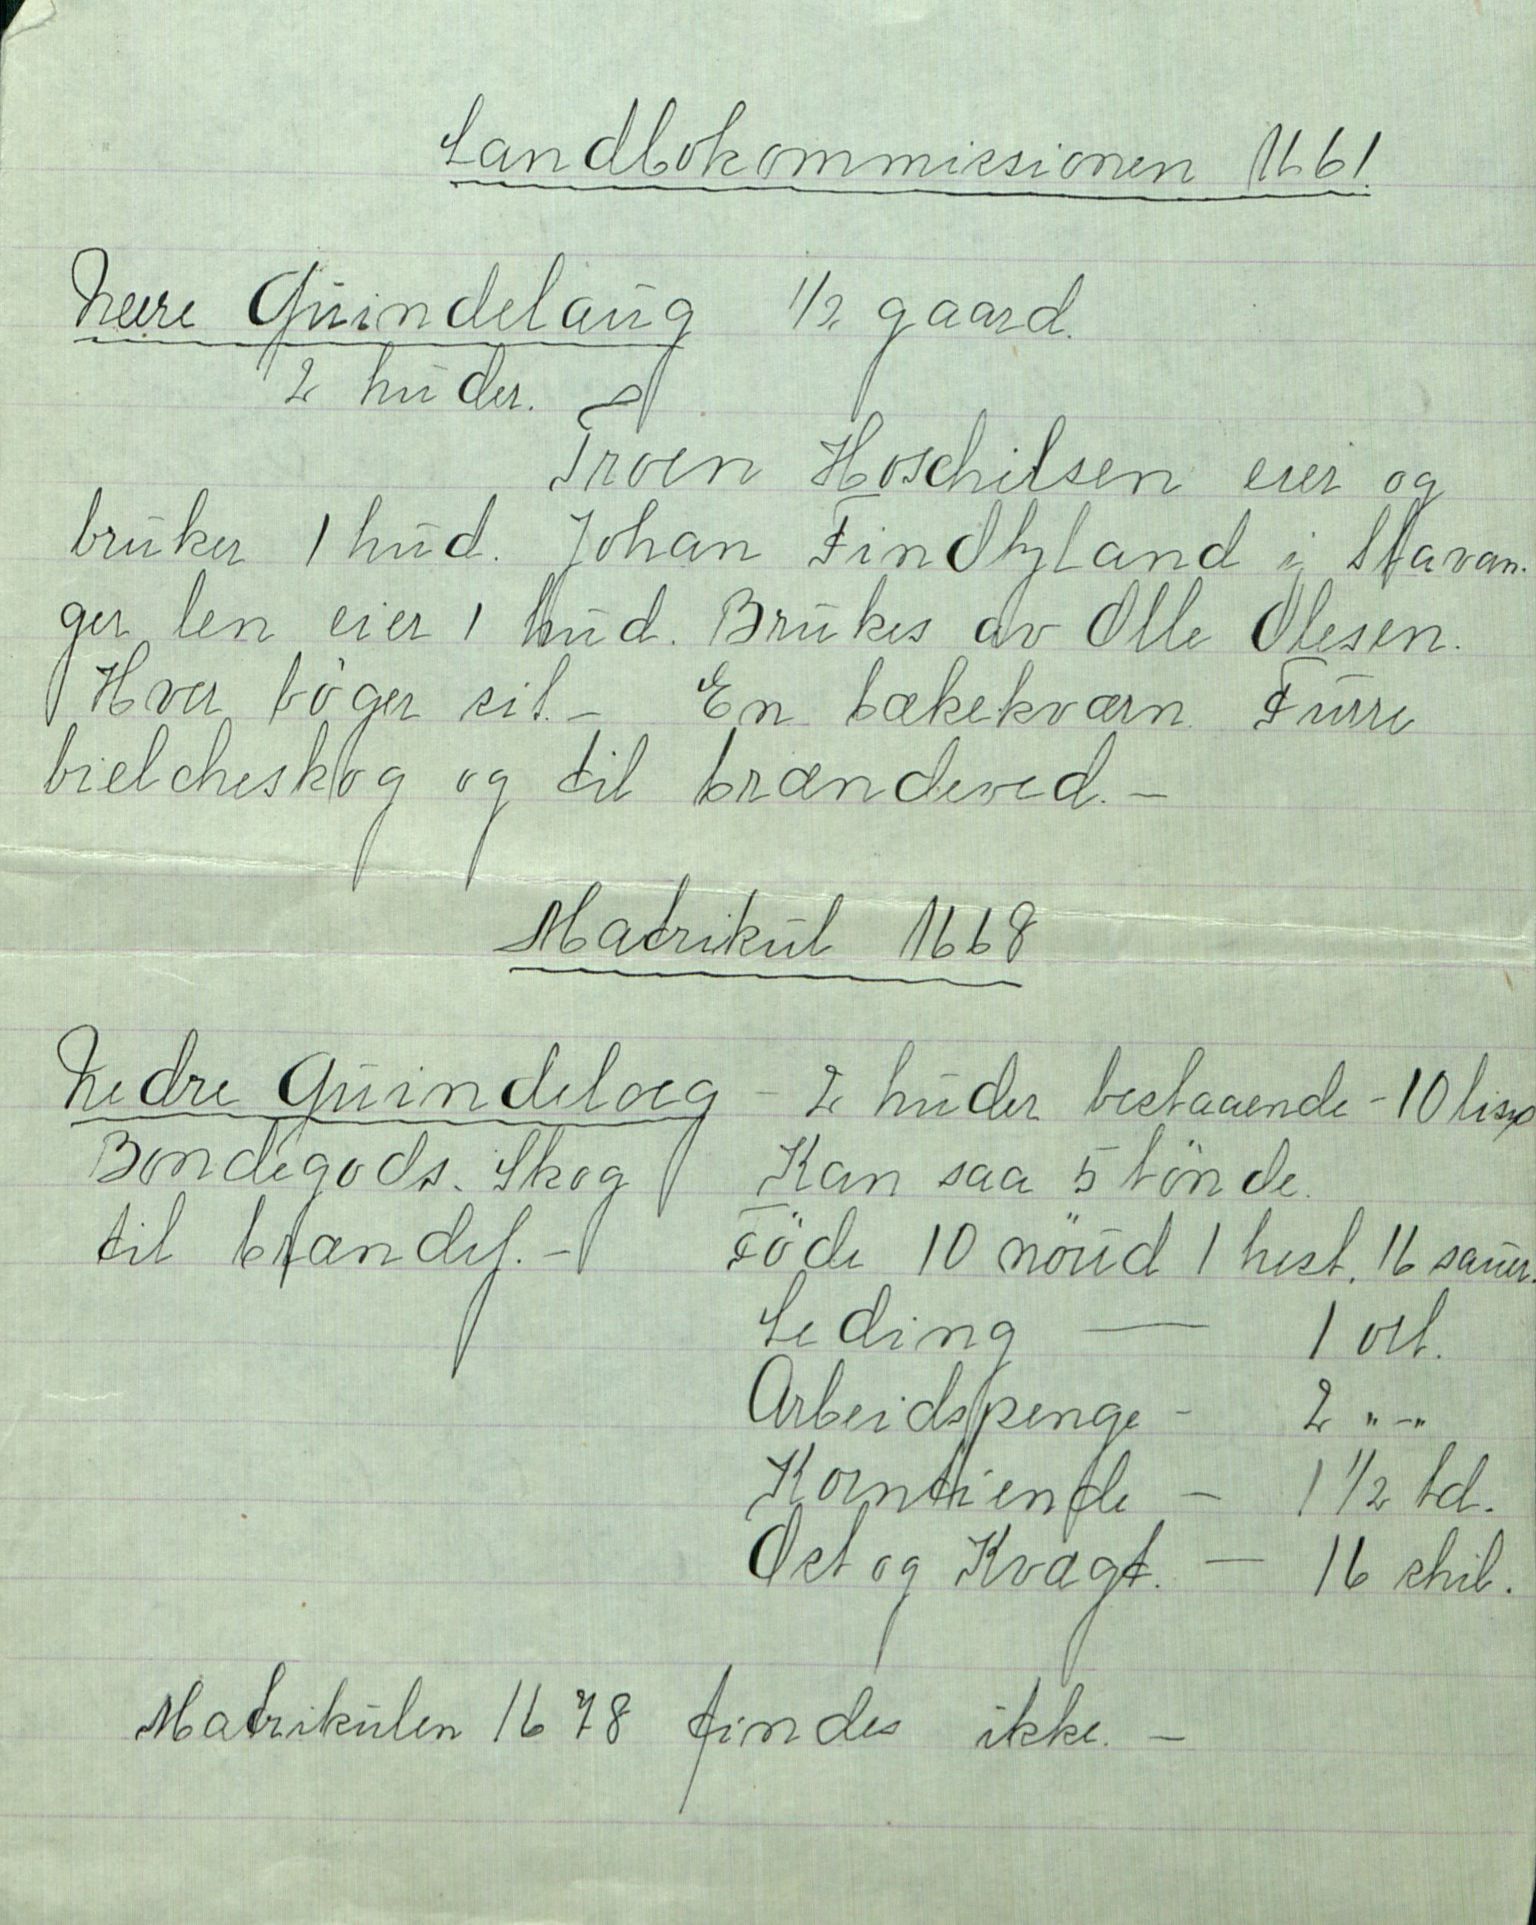 Landbokommissionen 1661.
Neere Quindelaug 1/2 gaard.
2 huder.
Troen Hoschilsen eier og
bruker 1 hud. Johan Findtzland i Stavan-
ger len eier 1 hud. Brukes av Olle Olesen.
Hver böger sit. – En bækekværn. Furre
bielcheskog og til brændeved. –
Matrikul 1668
Nedre Quindeloeg – 2 huder bestaaende – 10 lisp
Bondegods. Skog Kan saa 5 tönde.
til brændef. – Föde 10 nöud 1 hest, 16 sauer.
Leding — 1 ort.
Arbeidspenge – 2 " – "
Korntiende – 1 1/2 td.
Ost og Kvægt. — 16 skil.
Matrikulen 1678 findes ikke. –